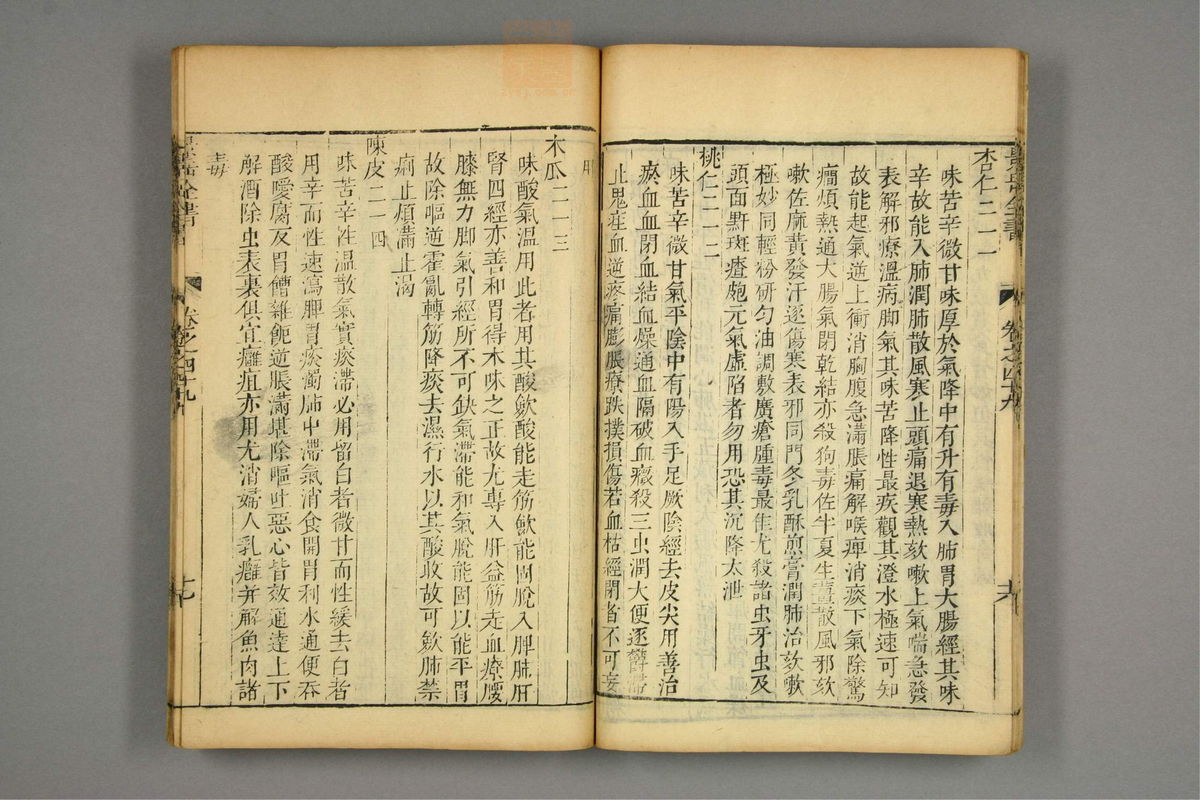 景岳全書
卷之四十九
杏仁二一一
味苦辛微甘味厚於氣降中有升有毒入肺胃大腸經其味
辛故能入肺潤肺散風寒止頭痛退寒熱欬嗽上氣喘急發
表解邪療溫病脚氣其味苦降性最疾觀其澄水極速可知
故能起氣逆上衝消胸腹急滿脹痛解喉痺消痰下氣除驚
癇煩熱通大腸氣閉乾結亦殺狗毒佐半夏生薑散風邪欬
嗽佐麻黃發汗逐傷寒表邪同門冬乳酥煎膏潤肺治欬嗽
極妙同輕粉研勻油調敷廣瘡腫毒最佳尤殺諸虫牙虫及
頭面䵟斑瘡皰元氣虛陷者勿用恐其沉降太泄
桃仁二一二
味苦辛微甘氣平陰中有陽入手足厥陰經去皮尖用善治
瘀血血閉血結血燥通血隔破血癥殺三虫潤大便逐鬱滯
止鬼疰血逆疼痛膨脹療跌撲損傷若血枯經閉者不可妄
用
木瓜二一三
味酸氣温用此者用其酸歛酸能走筋歛能固脫入脾肺肝
腎四經亦善和胃得木味之正故尤專入肝益筋走血療腰
膝無力脚氣引經所不可缺氣滯能和氣脫能固以能平胃
故除嘔逆霍亂轉筋降痰去濕行水以其酸收故可歛肺禁
痢止煩滿止渴
陳皮二一四
味苦辛性温散氣實痰滯必用留白者微甘而性緩去白者
用辛而性速瀉脾胃痰濁肺中滯氣消食開胃利水通便吞
酸噯腐反胃嘈雜呃逆脹滿堪除嘔吐惡心皆效通達上下
解酒除虫表裏俱宜癰疽亦用尤消婦人乳癰并解魚肉諸
毒
景岳全書
卷之四十九